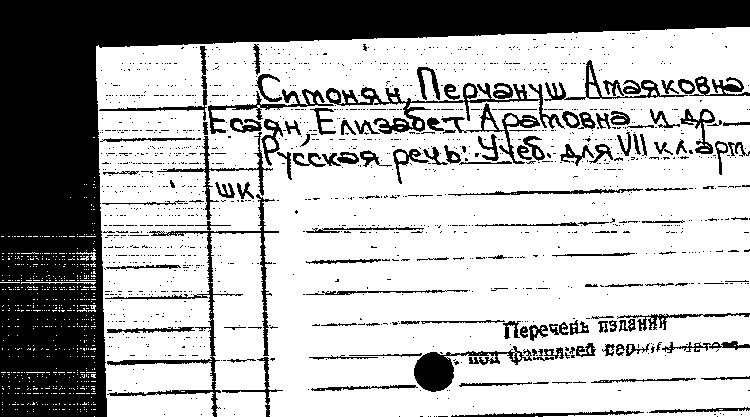 Симонян, Перчануш Амаяковна
Есаян, Елизабет Арамовна и др.
Русская речь: Учеб. для VII кл. арм.
шк.
Перечень изданий
под фамилией первого автора